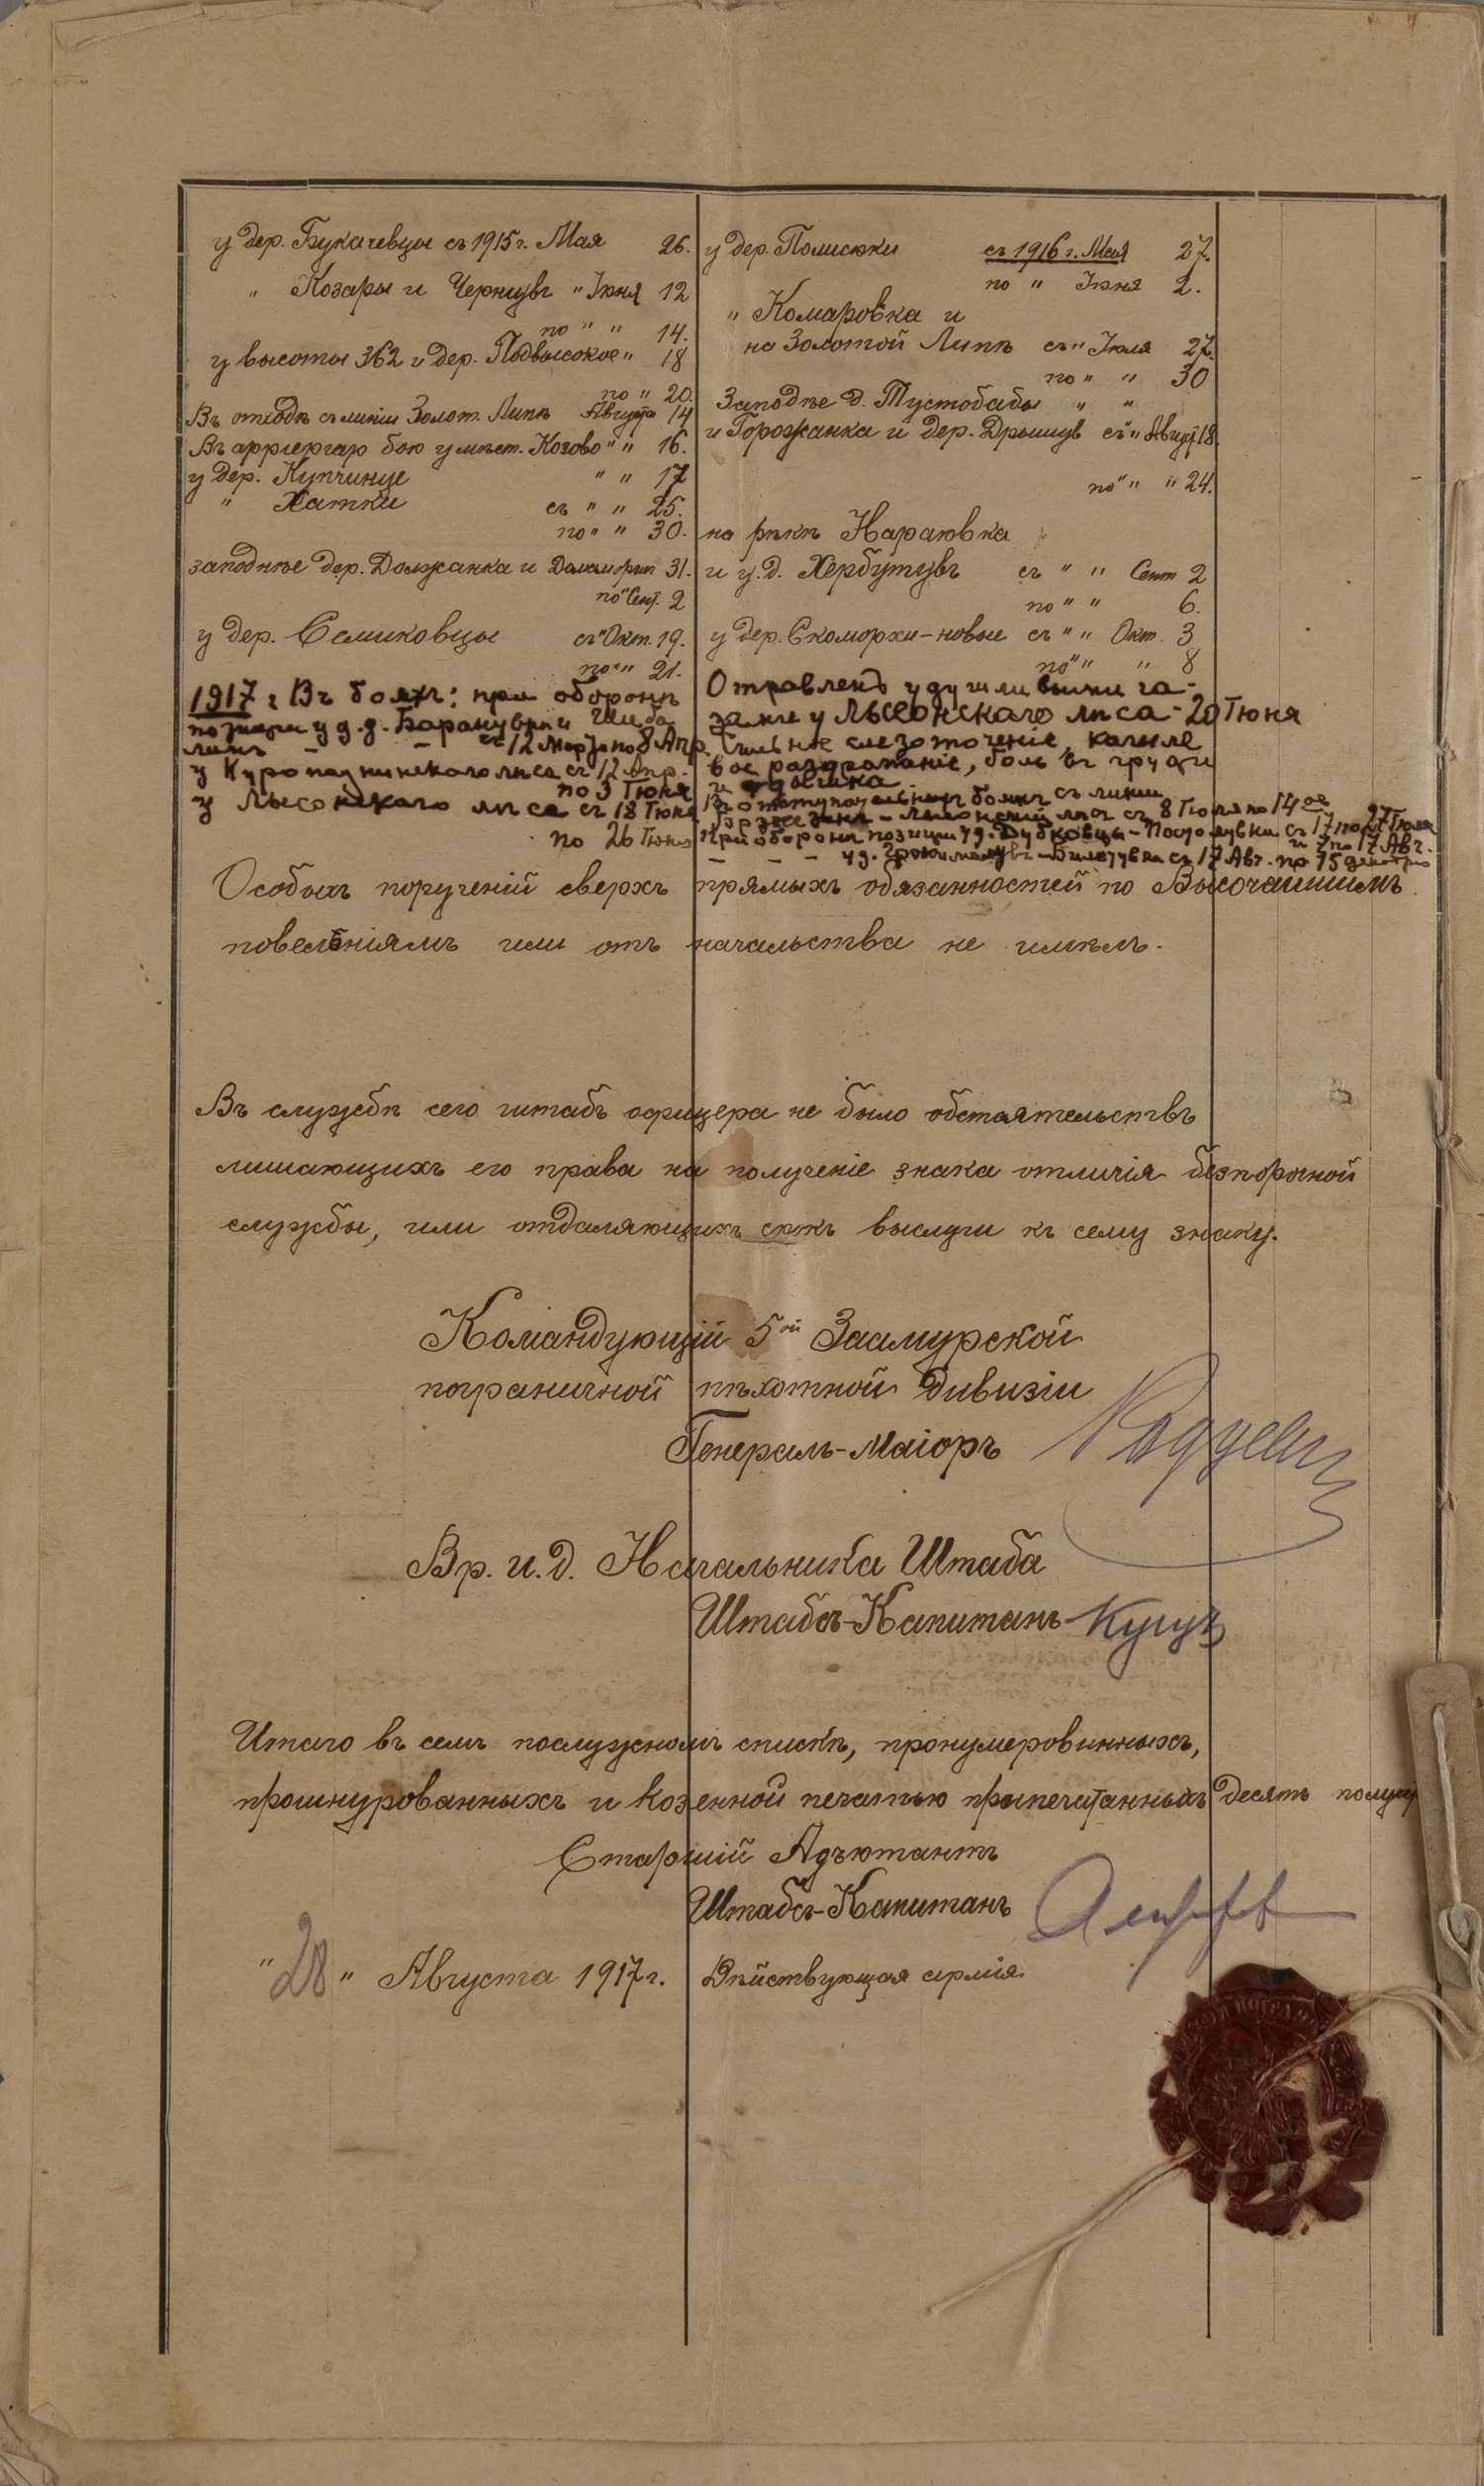 у дер. Букачевцы съ 1915 г. Мая 26.
" Козары и Чернцувъ " Іюня 12
по " " 14.
у высоты 362 и дер. Подвысокое " 18
по " 20.
Въ отходѣ съ линіи Золот. Липы Августа 14
Въ арріергар бою у мѣст. Козово " " 16.
у дер. Купчинце " " 17
" Хатки съ " " 25.
по " " 30.
западнѣе дер. Должанка и 31.
по " Сент. 2
у дер. Семиковцы съ " Окт. 19.
по " " 21.
1917 г Въ бояхъ: при оборонѣ
позиціи у д.д. Барануврки и Шиба
линъ - - съ 12 Мар по 8 Апр.
у Куропатникскаго лѣса съ 12 Апр.
по 3 Іюня
у Лысонскаго лѣса съ 18 Іюня
по 26 Іюня
у дер. Полисюки съ 1916 г. Мая 27.
по " Іюня 2.
" Комаровка и
на Золотой Липѣ съ " Іюля 27.
по " " 30
Западнѣе д. Тустобабы " "
и Горожанка и дер. Дрыщув съ " Авгус 18.
по " " " 24.
на рѣкѣ Нараювка
и у. д. Хербутувъ съ " " Сент 2
по " " 6.
у дер. Скоморхи-новые съ " " Окт. 3
по " " " 8
Отравленъ удушливыми га-
зами у Лысонскаго лѣса - 20 Іюня
Сильное слезоточеніе, кашле
вое раздраженіе, боль въ груди
и одышка.
Въ отступательныхъ бояхъ съ линіи
Бржезаны - Лысонскій лѣсъ съ 8 Іюля по 14 ое
При оборонѣ позиціи у д. Дубковцы - Постолувки съ 17 по 27 Іюля
и 7 по 17 Авг.
- - - у д. - съ 17 Авг. по 15 декабря
Особыхъ порученій сверхъ прямыхъ обязанностей по Высочайшимъ
повелѣніямъ или отъ начальства не имѣлъ.
Въ службѣ сего штабъ офицера не было обстоятельствъ
лишающихъ его права на полученіе знака отличія безпорочной
службы, или отдаляющихъ срокъ выслуги къ сему знаку.
Командующій 5ой Заамурской
пограничной пѣхотной дивизіи
Генералъ-Маіоръ
Вр. и. д. Начальника Штаба
Штабсъ-Капитанъ
Итого въ семъ послужномъ спискѣ, пронумерованныхъ,
прошнурованныхъ и козенной печатью припечатанныхъ десять
Старшій Адъютантъ
Штабсъ-Капитанъ
"28" Августа 1917 г. Дѣйствующая армія.